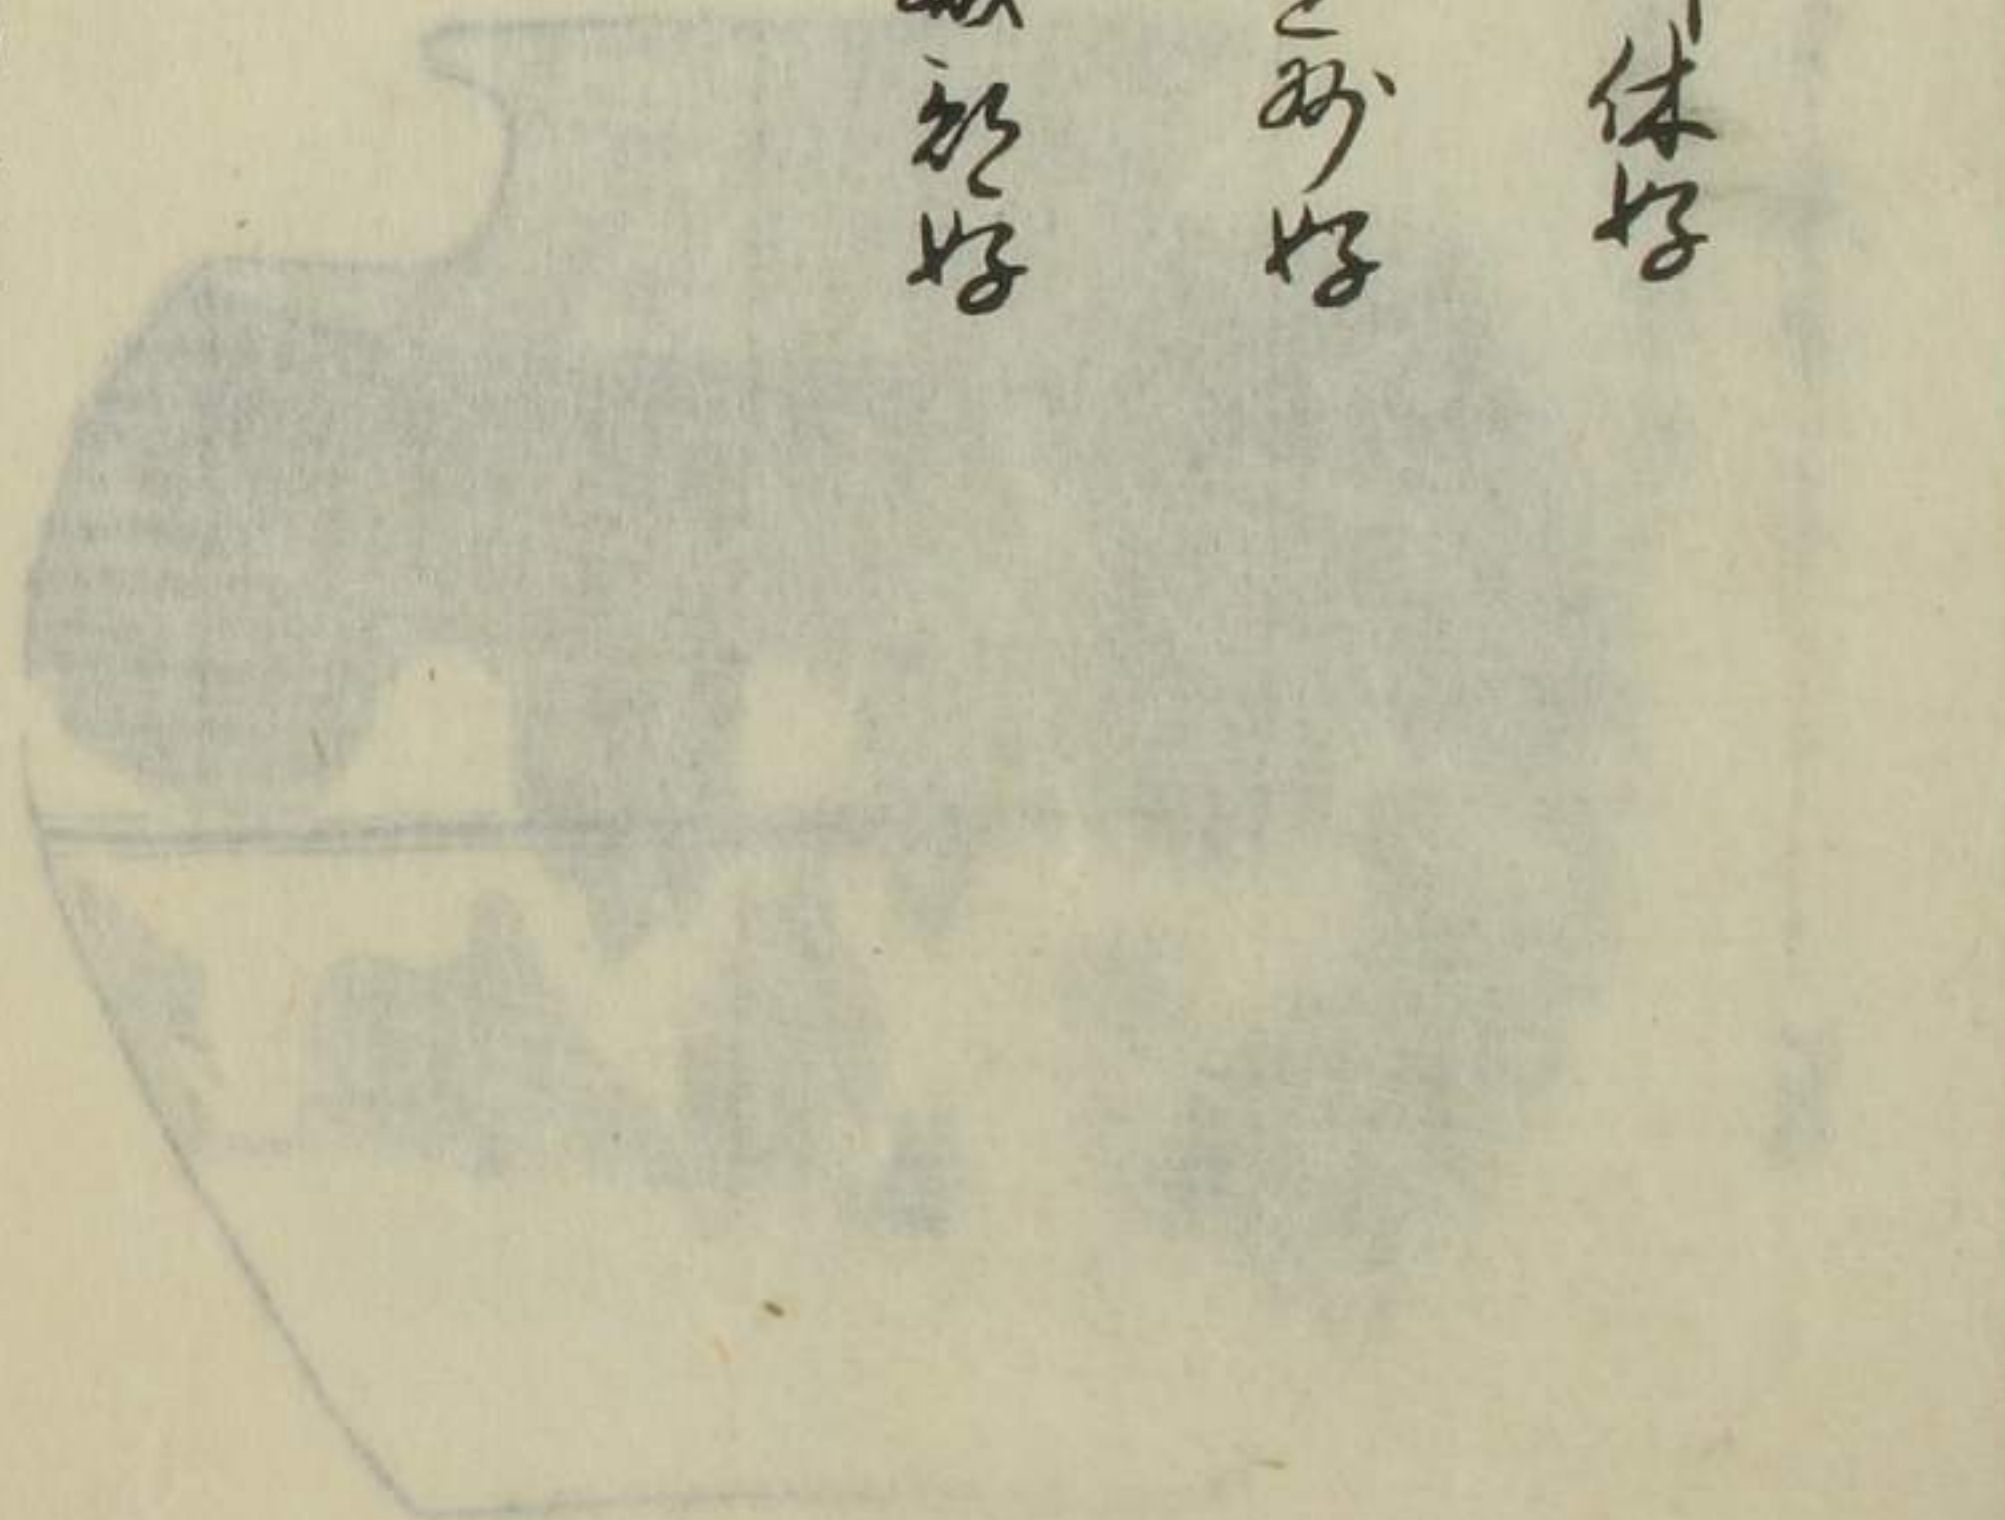 休好
州好
部好